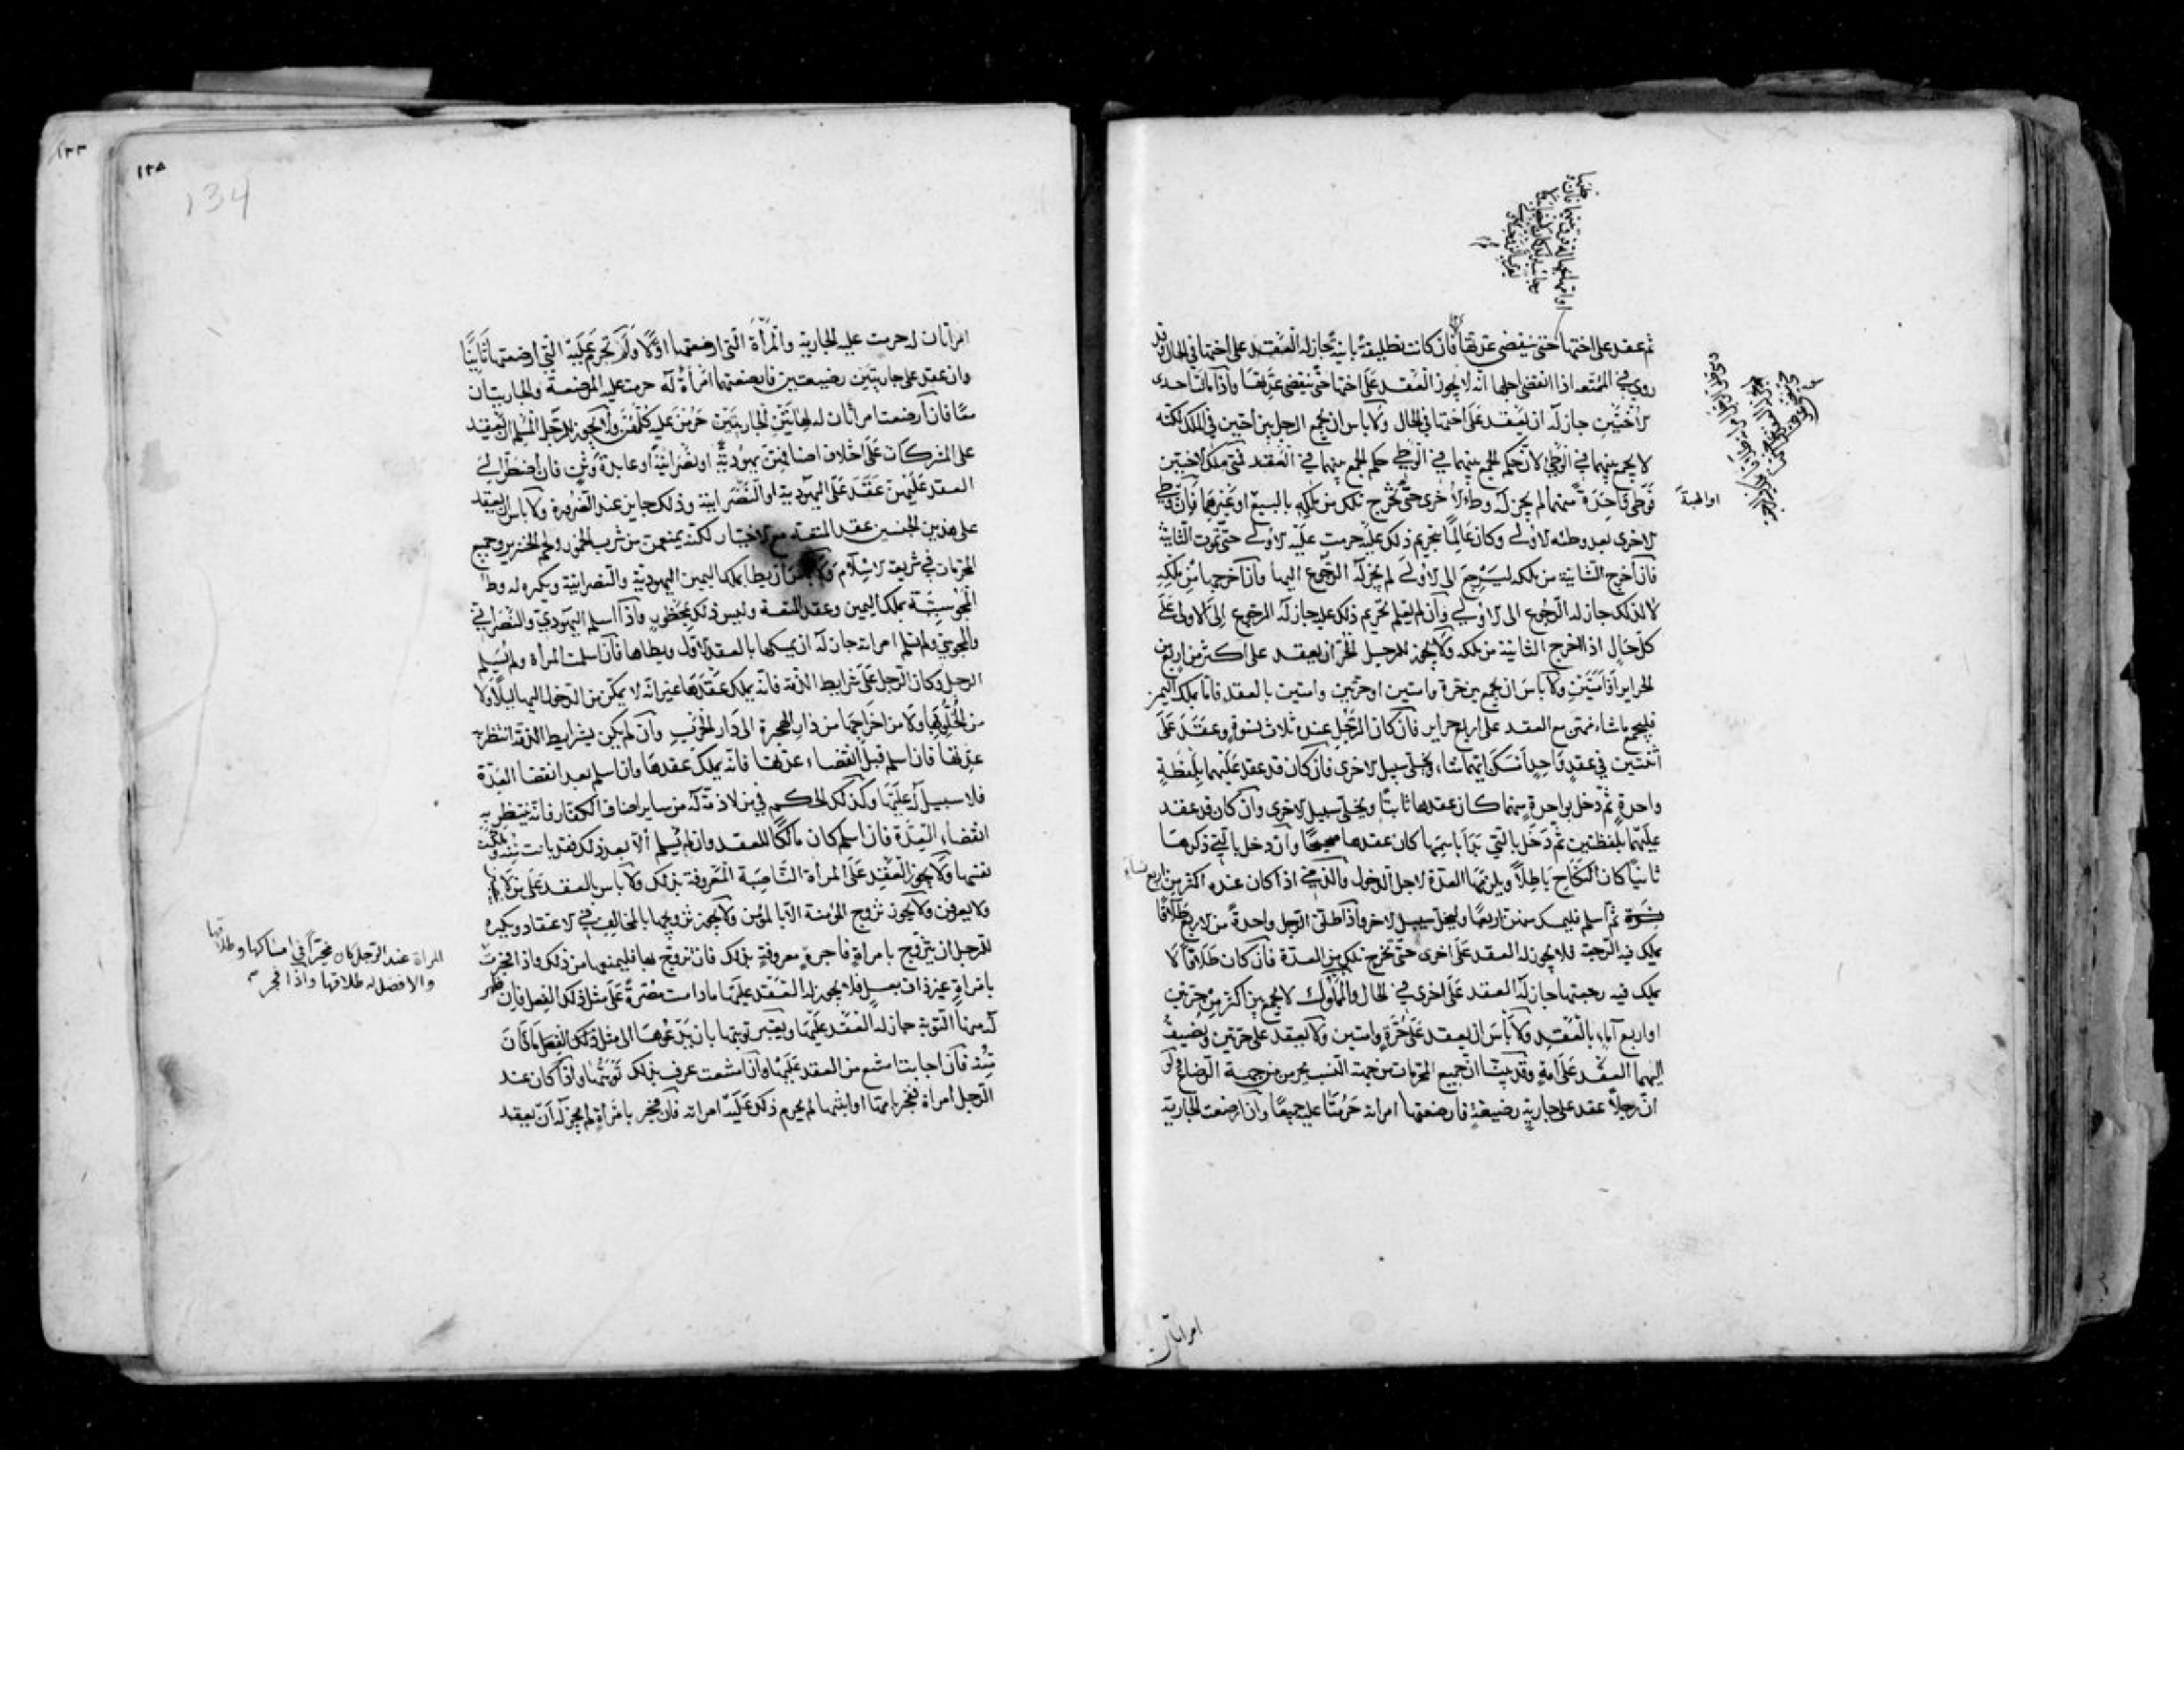 ثم عقد على اختها حتى ينقضي عدتها فان كانت تطليقة باينة جاز له العقد على اختها في الحال وقد
روي في المتعه اذا انقضى اجلها انه لا يجوز العقد على اختها حتى ينقضي عدتها واذا ماتت احدى
الاختين جاز له ان يعقد على اختها في الحال ولا باس ان يجمع الرجل بين اختين في الملك لكنه
لا يجمع بينهما في الوطي لان حكم الجمع بينهما في الوطي حكم الجمع بينهما في العقد فمتى ملك الاختين
فوطي واحدة منهما لم يجز له وطء الاخرى حتى تخرج تلك من ملكه بالبيع او غيرهما فان وطي
او الهبة
الاخرى بعد وطئه الاولى وكان عالما بتحريم ذلك عليه حرمت عليه الاولى حتى تموت الثانية
فان اخرج الثانية من ملكه ليرجع الى الاولى لم يجز له الرجوع اليها وان اخرجها من ملكه
لا لذلك جاز له الرجوع الى الاولى وان لم يعلم تحريم ذلك عليه جاز له الرجوع الى الاولى على
كل حال اذا اخرج الثانية من ملكه ولا يجوز للرجل الحر ان يعقد على اكثر من اربع من
الحراير او امتين ولا باس ان يجمع بين حرة وامتين او حرتين وامتين بالعقد فاما بملك اليمين
فليجمع ما شاء منهن مع العقد على اربع حراير فان كان الرجل عنده ثلاث نسوة وعقد على
اثنتين في عقد واحد امسك ايتهما شاء ويخلي سبيل الاخرى فان كان قد عقد عليهما بلفظة
واحدة ثم دخل بواحدة منهما كان عقدها ثابتا ويخلي سبيل الاخرى وان كان قد عقد
عليهما بلفظتين ثم دخل بالتي بدا باسمها كان عقدها صحيحا وان دخل بالتي ذكرها
ثانيا كان النكاح باطلا ويلزمها العدة لاجل الدخول والذمي اذا كان عنده اكثر من اربع نساء
ثم اسلم فليمسك منهن اربعا وليخل سبيل الاخر واذا طلق الرجل واحدة من الاربع طلاقا
يملك فيه الرجعة فلا يجوز له العقد على اخرى حتى تخرج تلك من العدة فان كان طلاقا لا
يملك فيه رجعتها جاز له العقد على اخرى في الحال والمملوك لا يجمع بين اكثر من حرتين
او اربع اماء بالعقد ولا باس ان يعقد على حرة وامتين ولا يعقد على حرتين ويضيف
اليهما العقد على امة وقد بينا ان جميع المحرمات من جهة النسب يحرمن من جهة الرضاع ولو
ان رجلا عقد على جارية رضيعة فارضعتها امراته حرمتا عليه جميعا وان ارضعت الجارية
امراتان
امراتان له حرمت عليه الجارية والمرأة التي ارضعتها اولا ولم تحرم عليه التي ارضعتها ثانيا
وان عقد على جاريتين رضيعتين فارضعتهما امرأة له حرمت عليه المرضعة والجاريتان
معا فان ارضعتا مرأتان له هاتين الجاريتين حرمن عليه كلهن ولا يجوز للرجل المسلم ان يعقد
على المشركات على اختلاف اصنافهن يهودية او نصرانية او عابدة وثن فان اضطر الى
العقد عليهن عقد على اليهودية او النصرانية وذلك جايز عند الضرورة ولا باس ان يعقد
على هذين الجنسين عقد المتعة مع الاختيار لكنه يمنعهن من شرب الخمور ولحم الخنزير وجميع
المحرمات في شريعة الاسلام ولا باس ان يطا بملك اليمين اليهودية والنصرانية ويكره له وطء
المجوسية بملك اليمين وعقد المتعة وليس ذلك بمحظور واذا اسلم اليهودي والنصراني
والمجوسي ولم تسلم امراته جاز له ان يمسكها بالعقد الاول ويطاها فان اسلمت المرأة ولم يسلم
الرجل وكان الرجل على شرايط الذمة فانه يملك عقدها غير انه لا يمكن من الدخول اليها ليلا ولا
من الخلو بها ولا من اخراجها من دار الهجرة الى دار الحرب وان لم يكن بشرايط الذمة انتظر به
عدتها فان اسلم قبل انقضاء عدتها فانه يملك عقدها وان اسلم بعد انقضا العدة
فلا سبيل له عليها وكذلك الحكم في من لا ذمة له من ساير اصناف الكفار فانه ينتظر به
انقضاء العدة فان اسلم كان مالكا للعقد وان لم يسلم الا بعد ذلك فقد بانت منه وملكت
نفسها ولا يجوز العقد على المرأة الناصبة المعروفة بذلك ولا باس بالعقد على من لا
ولا يعرفن ولا يجوز تزويج المؤمنة الا بالمؤمن ولا يجوز تزويجها بالمخالف في الاعتقاد ويكره
للرجل ان يتزوج بامراة فاجرة معروفة بذلك فان تزوج بها فليمنعها من ذلك واذا فجرت
المراة عند الرجل كان مخيرا في امساكها وطلاقها
والافضل له طلاقها واذا فجر
بامراة غير ذات بعل فلا يجوز له العقد عليها ما دامت مصرة على مثل ذلك الفعل فان ظهر
له منها التوبة جاز له العقد عليها ويعتبر توبتها بان يدعوها الى مثل ذلك الفعل ما كان
منه فان اجابت امتنع من العقد عليها وان امتنعت عرف بذلك توبتها واذا كان عند
الرجل امراة ففجر بامها او ابنتها لم يحرم ذلك عليه امراته فان فجر بامراة لم يجز له ان يعقد
134